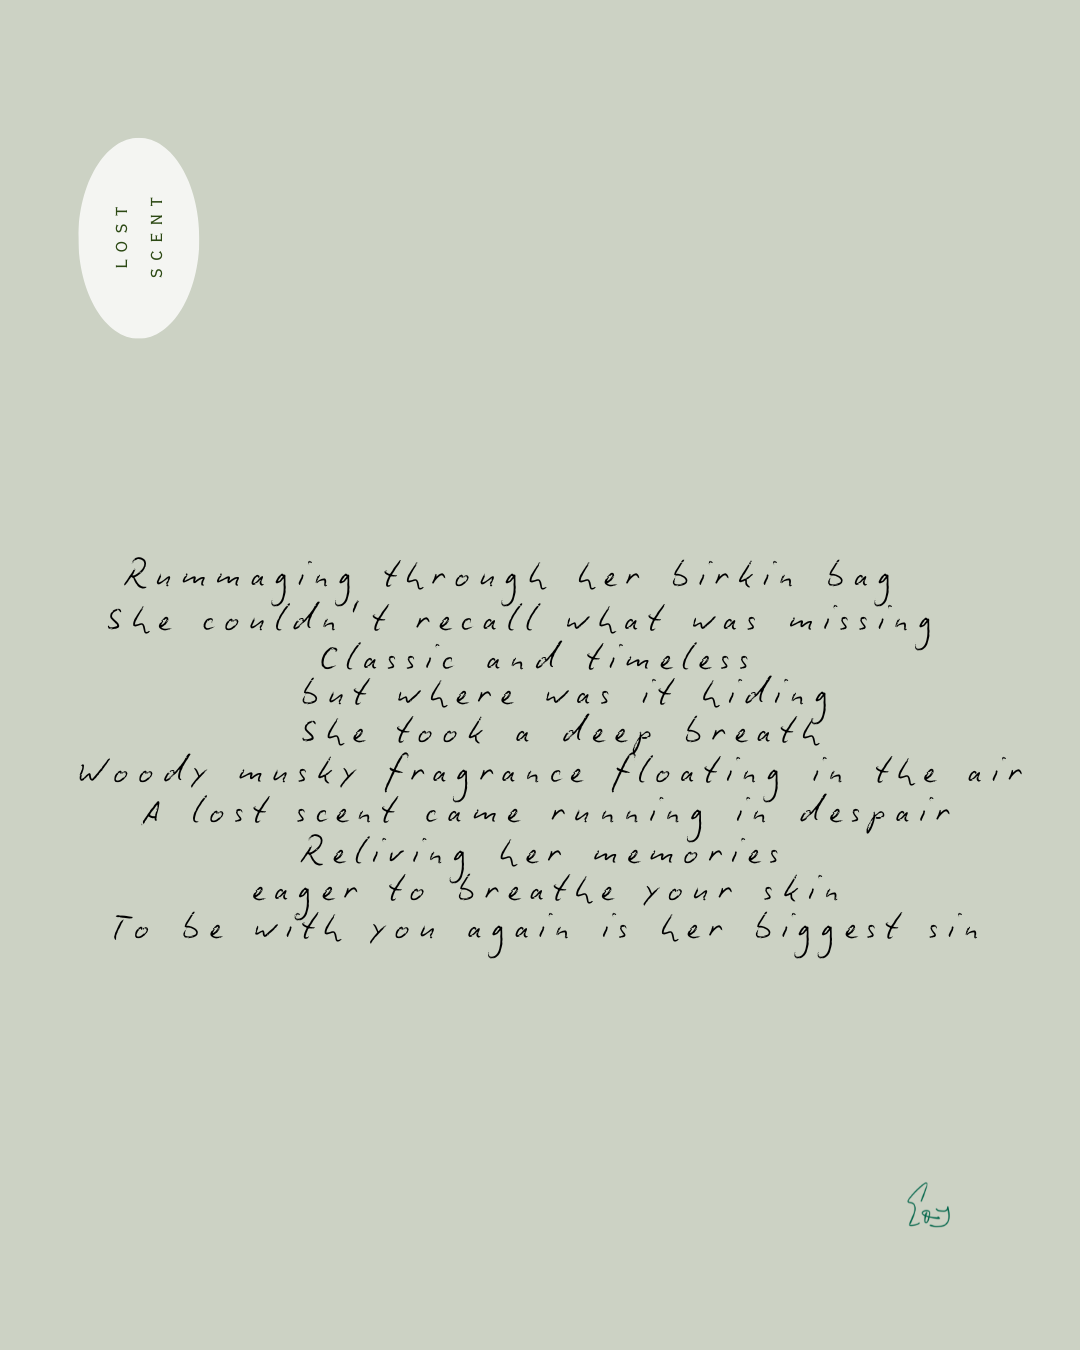 LOST
SCENT
Rummaging through her birkin bag
She couldn't recall what was missing
Classic and timeless
but where was it hiding
She took a deep breath
Woody musky fragrance floating in the air
A lost scent came running in despair
Reliving her memories
eager to breathe your skin
To be with you again is her biggest sin